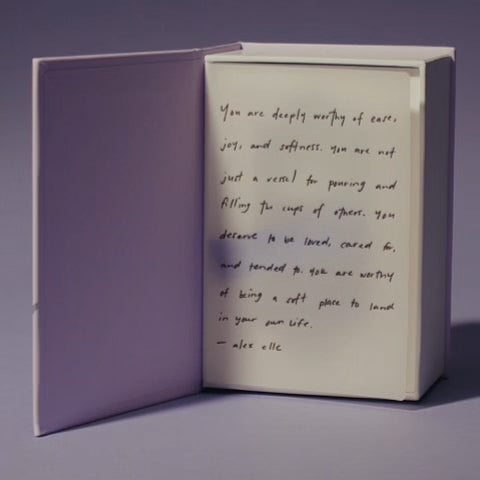 You are deeply worthy of ease,
joy, and softness. you are not
just a vessel for pouring and
filling the cups of others. you
deserve to be loved, cared for,
and tended to. you are worthy
of being a soft place to land
in your own life.
— alex elle